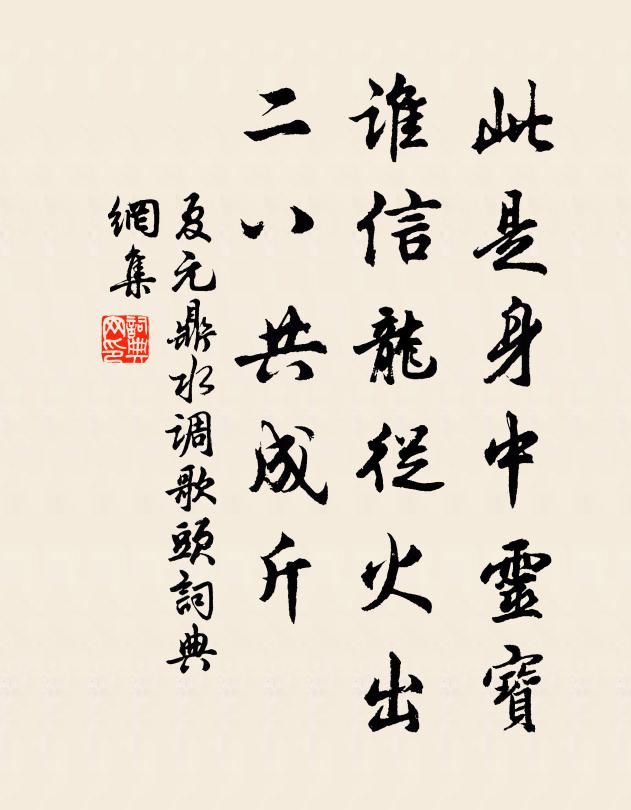 此是身中靈寶
誰信龍從火出
二八共成斤
夏元鼎水调歌頭詞典
網集
詞典
网印